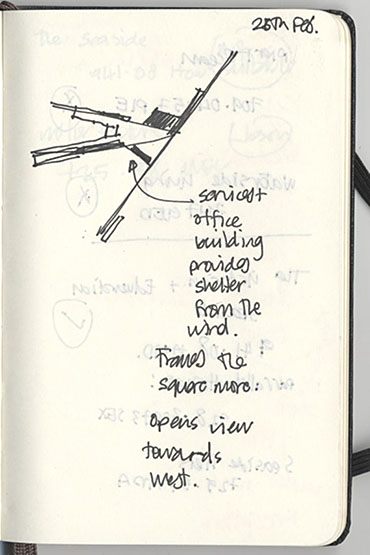 25th Feb.
services +
office
building
provides
shelter
from the
wind.
Frames the
square more.
opens view
towards
west.